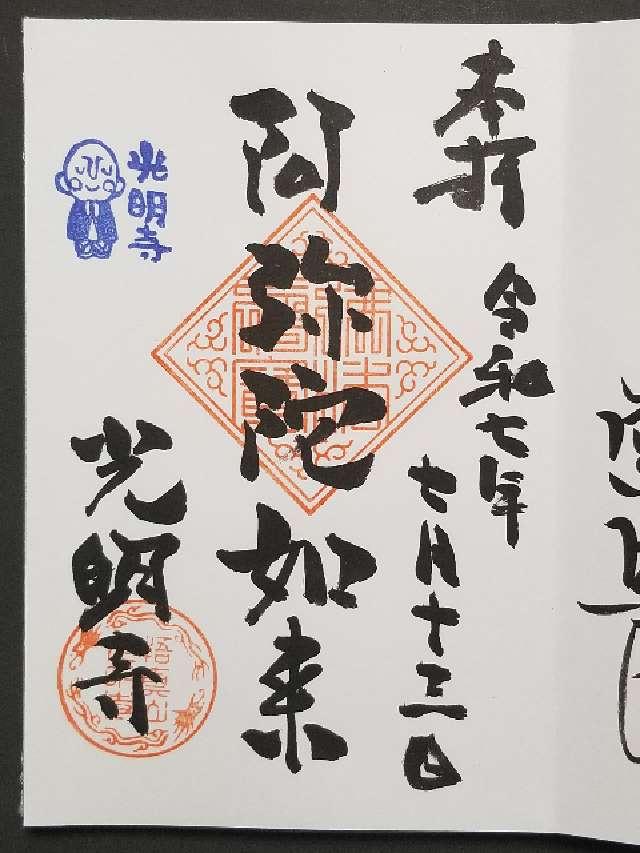 奉拝
令和七年
七月十三日
阿弥陀如来
光明寺
光明寺